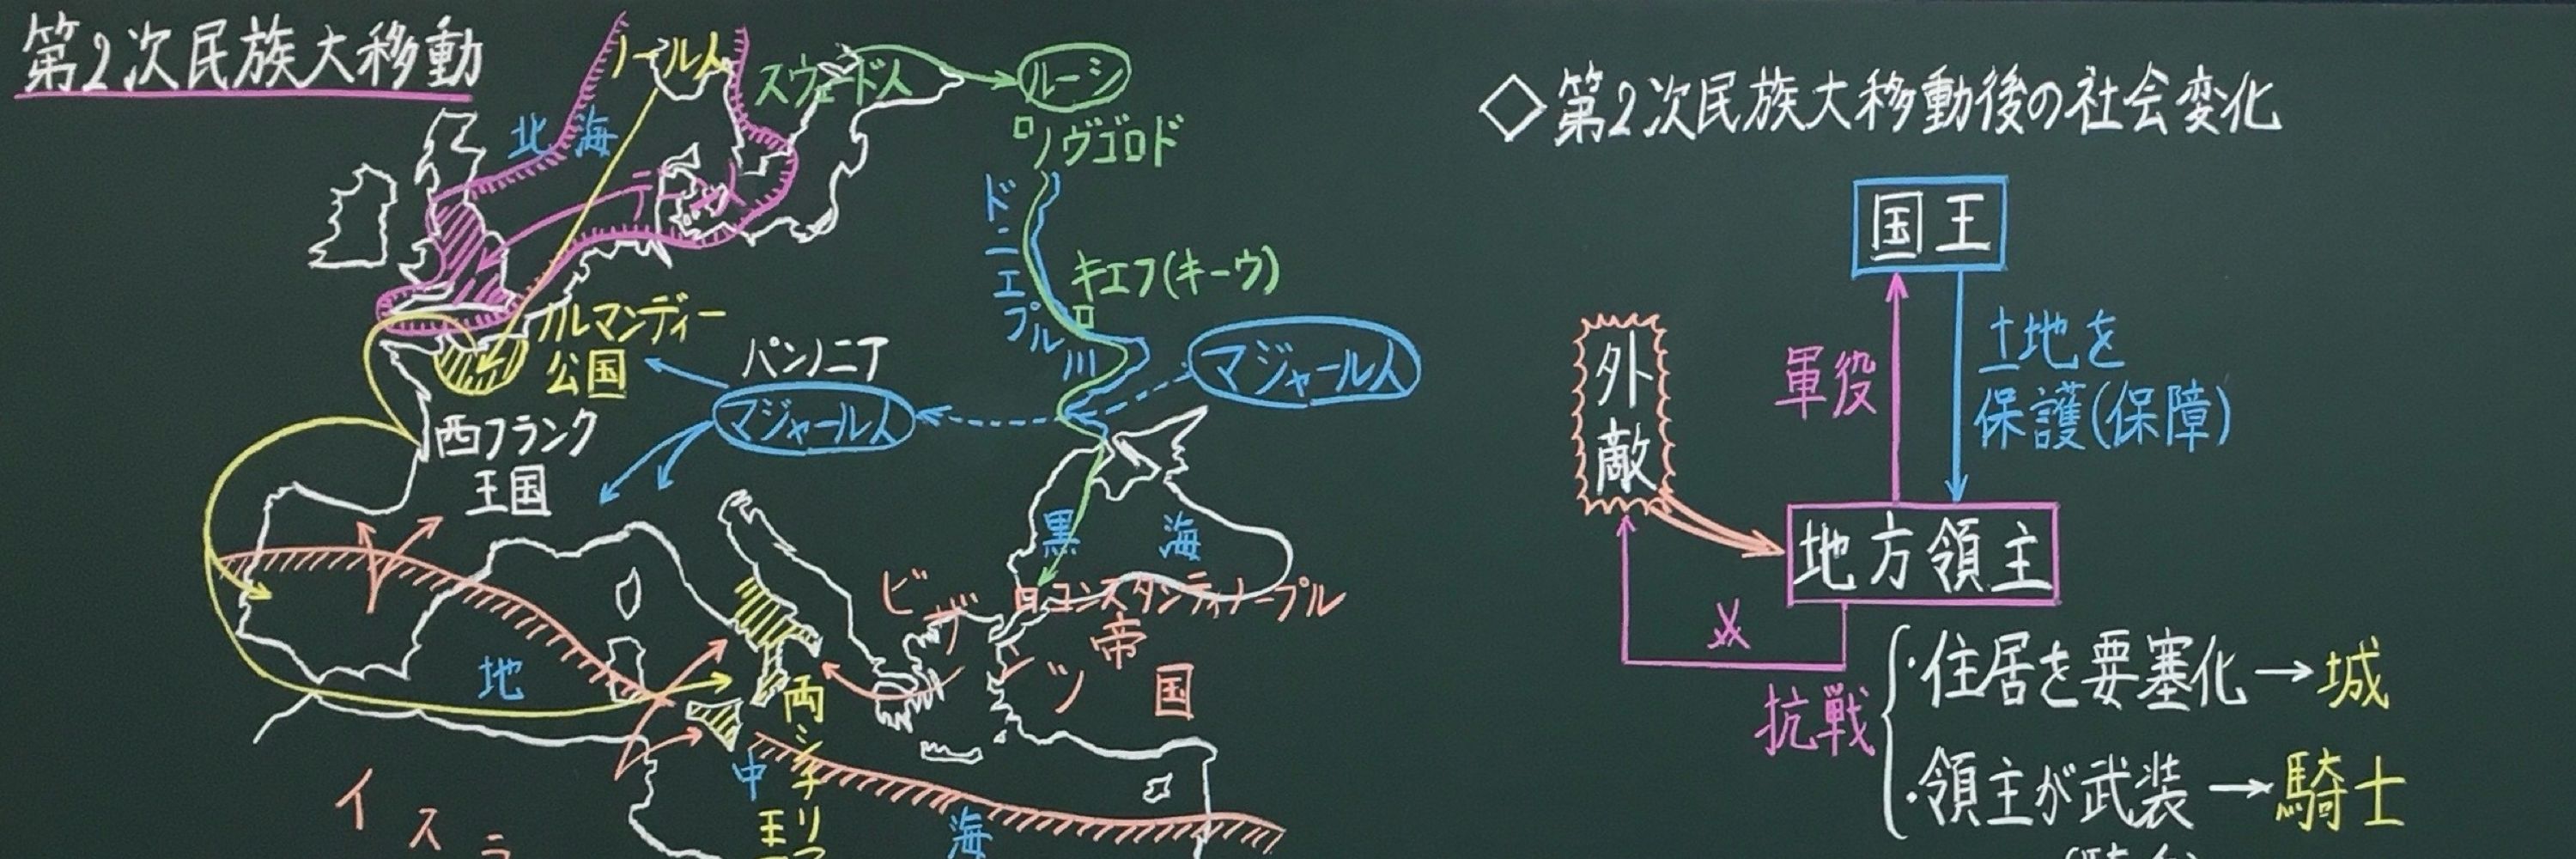 第2次民族大移動
ノール人
スウェード人
ルーシ
北海
ノヴゴロド
デーン人
ドニエプル川
キエフ(キーウ)
ノルマンディー
公国
パンノニア
マジャール人
マジャール人
西フランク
王国
黒海
コンスタンティノープル
ビザンツ帝国
地中海
両シチリア王
イスラ
◇第2次民族大移動後の社会変化
国王
外敵
軍役
土地を
保護(保障)
地方領主
抗戦
・住居を要塞化→城
・領主が武装→騎士